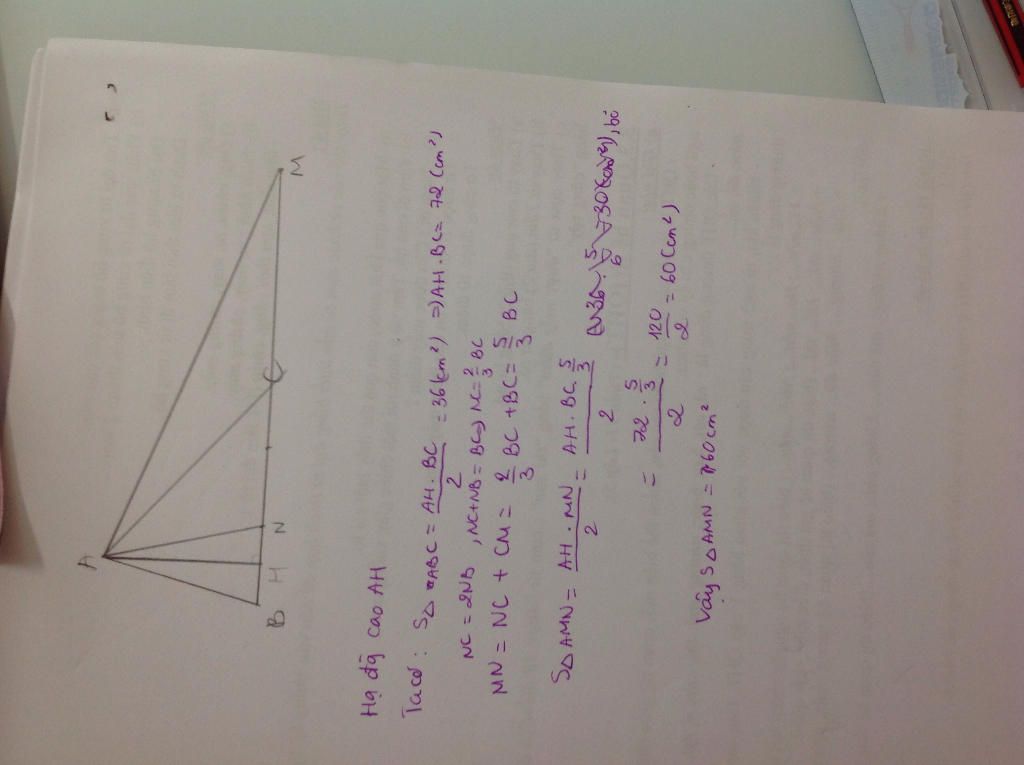 A
B
H
N
C
M
Hạ đg̃ cao AH
Ta có : S△ ABC = AH . BC / 2 = 36 (cm²) ⇒ AH . BC = 72 (cm²)
NC = 2NB , NC + NB = BC ⇒ NC = 2/3 BC
MN = NC + CM = 2/3 BC + BC = 5/3 BC
S△ AMN = AH . MN / 2 = AH . BC . 5/3 / 2
= 72 . 5/3 / 2 = 120 / 2 = 60 (cm²)
Vậy S△ AMN = 60 cm²